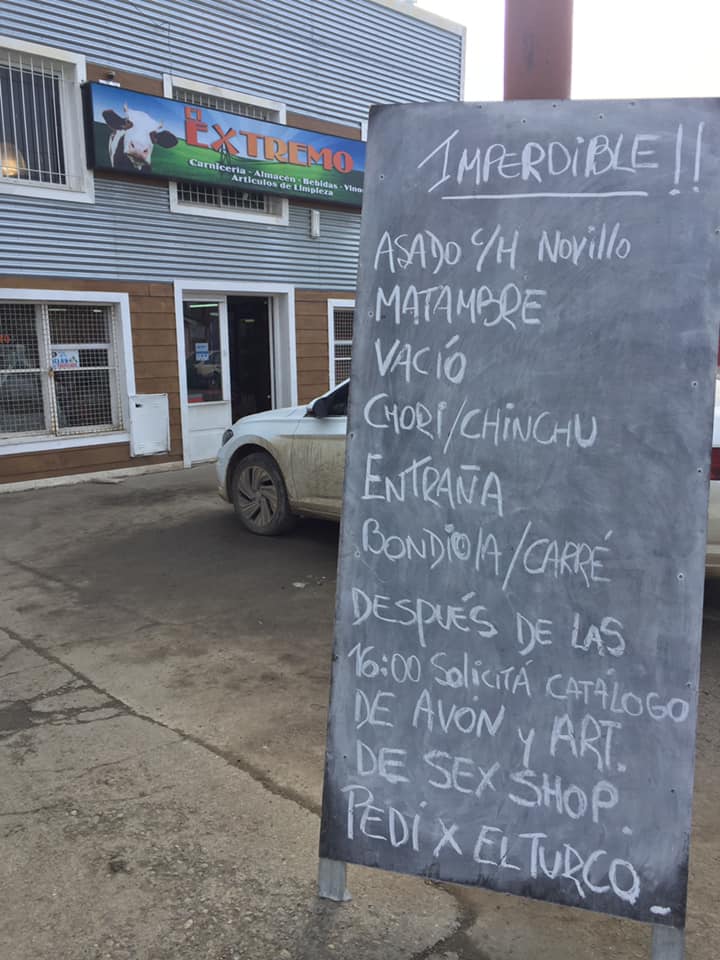 El
EXTREMO
Carnicería - Almacén - Bebidas - Vino
Artículos de Limpieza
IMPERDIBLE!!
ASADO C/H NOVILLO
MATAMBRE
VACIÓ
CHORI/CHINCHU
ENTRAÑA
BONDIOLA/CARRÉ
DESPUÉS DE LAS
16:00 SOLICITÁ CATÁLOGO
DE AVON Y ART.
DE SEX SHOP.
PEDI X EL TURCO